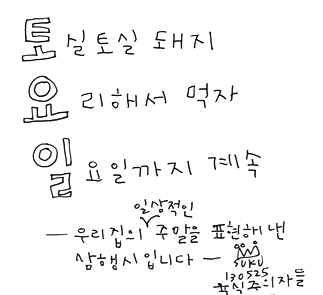 토실토실 돼지
요리해서 먹자
일요일까지 계속
— 우리집의 일상적인 주말을 표현해 낸
삼행시 입니다 —
SUKU
130525
육식주의자들